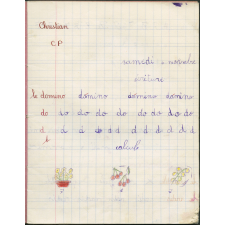 Christian
C.P
écriture
le domino domino domino domino
do do do do do do do do do
d d d d d d d d d d
d
calcul